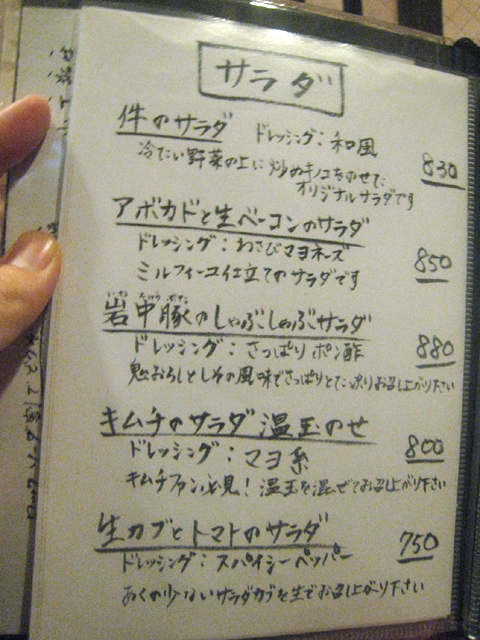 サラダ
件のサラダ ドレッシング:和風
冷たい野菜の上に炒めキノコをのせた 830
オリジナルサラダです
アボカドと生ベーコンのサラダ
ドレッシング:わさびマヨネーズ 850
ミルフィーユ仕立てのサラダです
岩中豚のしゃぶしゃぶサラダ
ドレッシング:さっぱりポン酢 880
鬼おろしとしその風味でさっぱりとお召し上がり下さい
キムチのサラダ温玉のせ
ドレッシング:マヨ系 800
キムチファン必見!温玉を混ぜてお召し上がり下さい
生カブとトマトのサラダ
ドレッシング:スパイシーペッパー 750
あくの少ないサラダカブを生でお召し上がり下さい